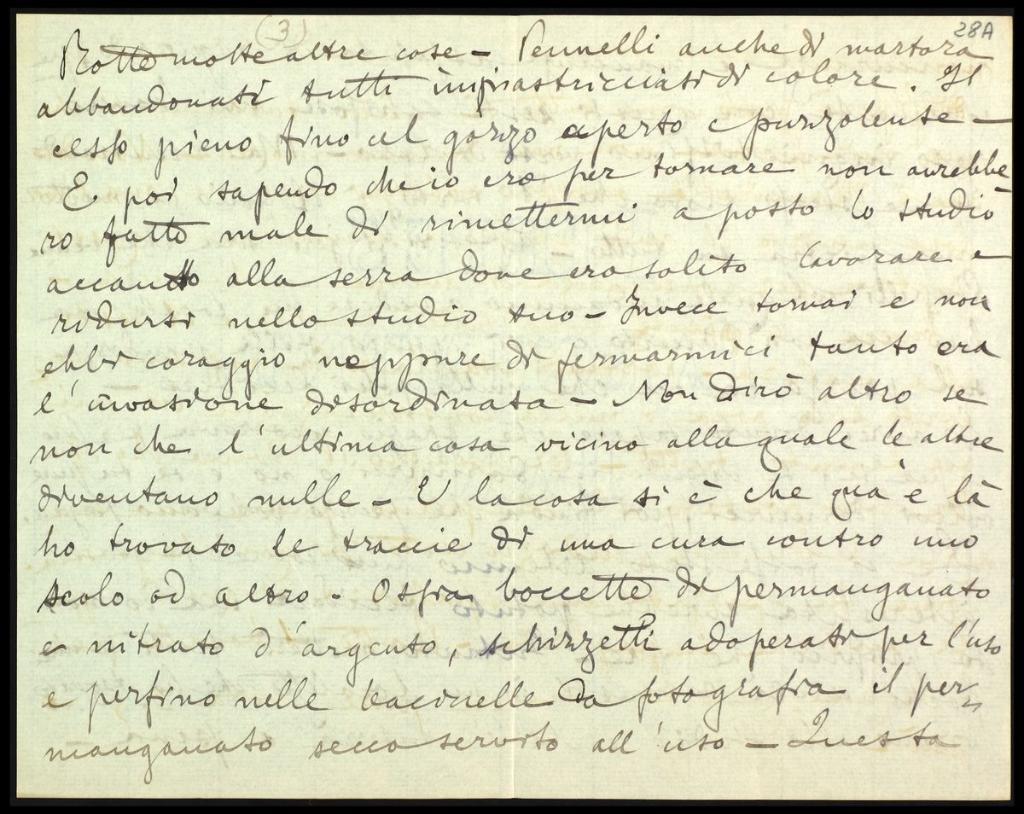 (3)
28A
Rotte molte altre cose - Pennelli anche di martora
abbandonati tutti impiastricciati di colore. Il
cesso pieno fino al gozzo aperto e punzolente -
E poi sapendo che io ero per tornare non avrebbe
ro fatto male di rimettermi a posto lo studio
accanto alla serra dove ero solito lavorare e
ridursi nello studio suo - Invece tornai e non
ebbi coraggio neppure di fermarmici tanto era
l'invasione disordinata - Non dirò altro se
non che l'ultima cosa vicino alla quale le altre
diventano nulle - E la cosa si è che quà e là
ho trovato le traccie di una cura contro uno
scolo od altro - Ossia boccette di permanganato
e nitrato d'argento, schizzetti adoperati per l'uso
e perfino nelle bacinelle da fotografia il per=
manganato secco servito all'uso - Questa